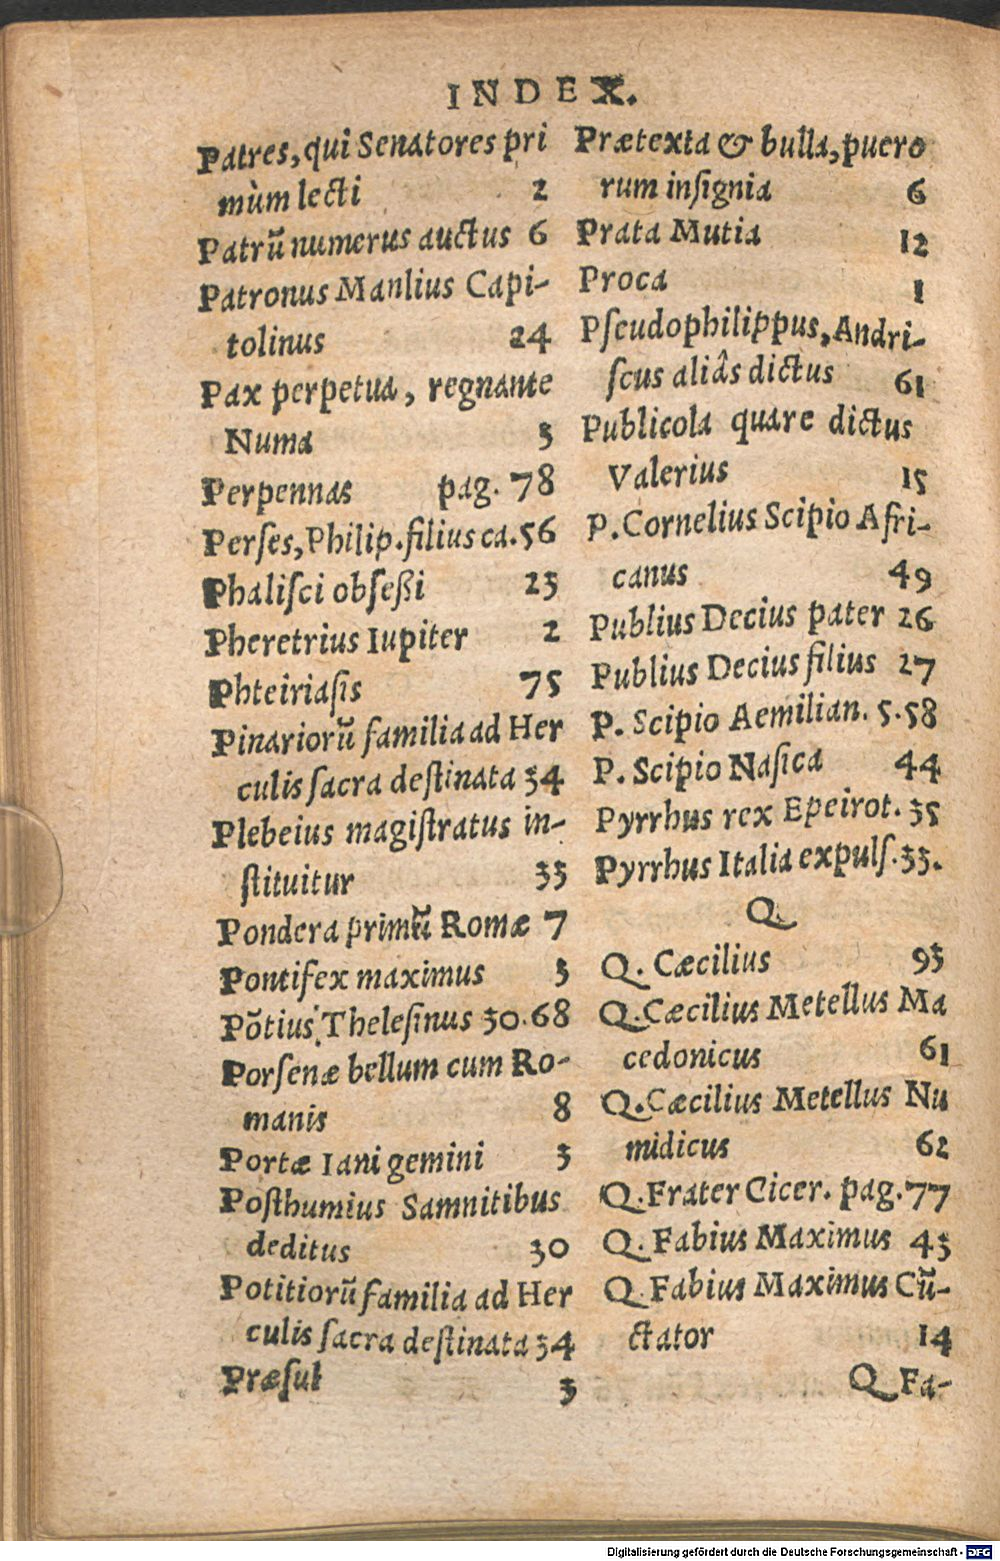 INDEX.
Patres, qui Senatores pri
mùm lecti 2
Patrũ numerus auctus 6
Patronus Manlius Capi-
tolinus 24
Pax perpetua, regnante
Numa 3
Perpennas pag. 78
Perses, Philip. filius ca. 56
Phaliſci obſeßi 23
Pheretrius Iupiter 2
Phteiriaſis 75
Pinariorũ familia ad Her
culis ſacra deſtinata 34
Plebeius magiſtratus in-
ſtituitur 33
Pondera primũ Romæ 7
Pontifex maximus 3
Põtius Theleſinus 30.68
Porſenæ bellum cum Ro-
manis 8
Portæ Iani gemini 3
Poſthumius Samnitibus
deditus 30
Potitiorũ familia ad Her
culis ſacra deſtinata 34
Præſul 3
Prætexta & bulla, puero
rum inſignia 6
Prata Mutia 12
Proca 1
Pſeudophilippus, Andri-
ſcus aliâs dictus 61
Publicola quare dictus
Valerius 15
P. Cornelius Scipio Afri-
canus 49
Publius Decius pater 26
Publius Decius filius 27
P. Scipio Aemilian. 5.58
P. Scipio Naſica 44
Pyrrhus rex Epeirot. 35
Pyrrhus Italia expulſ. 33.
Q.
Q. Cæcilius 93
Q. Cæcilius Metellus Ma
cedonicus 61
Q. Cæcilius Metellus Nu
midicus 62
Q. Frater Cicer. pag. 77
Q. Fabius Maximus 43
Q. Fabius Maximus Cũ-
ctator 14
Q Fa-
Digitalisierung gefördert durch die Deutsche Forschungsgemeinschaft - DFG